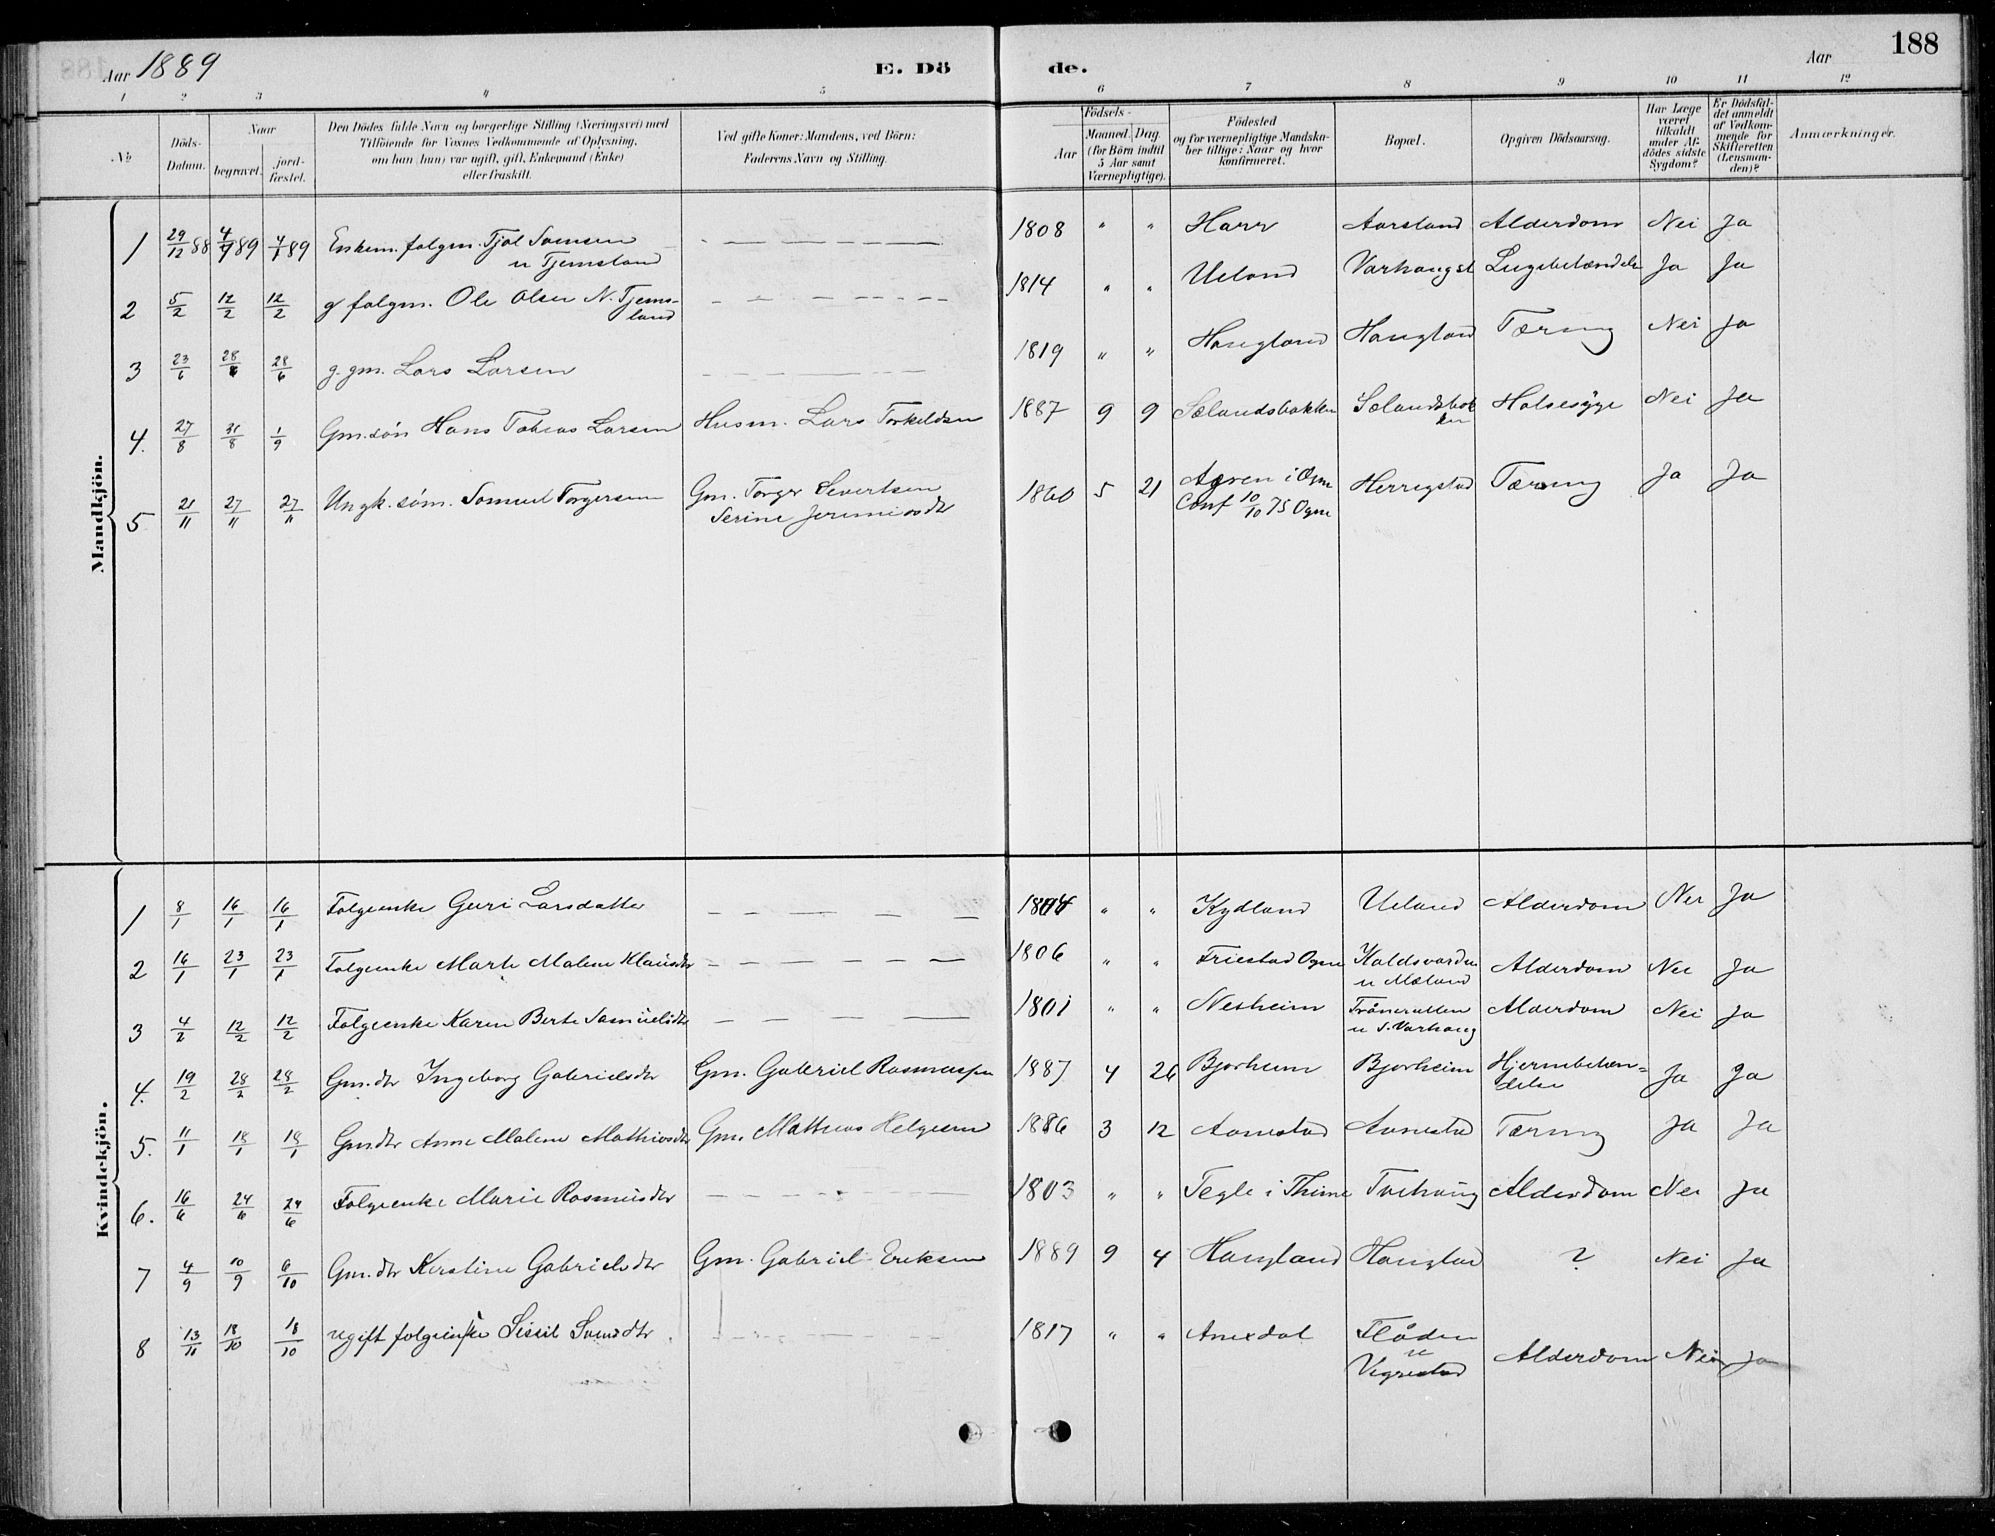 188
Aar 1889
E. Dö de.
Aar
1 2 3 4 5 6 7 8 9 10 11 12
№
Döds-Datum.
Naar
begravet.
jord-fæstet.
Den Dödes fulde Navn og borgerlige Stilling (Næringsvei) med
Tilföiende for Voxnes Vedkommende af Oplysning,
om han (hun) var ugift, gift, Enkemand (Enke)
eller fraskilt.
Ved gifte Koner: Mandens, ved Börn:
Faderens Navn og Stilling.
Födsels-
Aar
Maaned. Dag.
(for Börn indtil
5 Aar samt
Værnepligtige).
Födested
og for værnepligtige Mandska-
ber tillige: Naar og hvor
konfirmeret.
Bopæl.
Opgiven Dödsaarsag.
Har Læge
været
tilkaldt
under Af-
dödes sidste
Sygdom?
Er Dödsfal-
det anmeldt
af Vedkom-
mende for
Skifteretten
(Lensman-
den)?
Anmærkninger.
Mandkjön.
1 29/12 88 4/1 89 4/1 89 Enkem. folgm. Tjöl Samsen u Tjemsland — 1808 " " Harr Aarsland Alderdom Nei Ja
2 5/2 12/2 12/2 g folgm. Ole Olsen N. Tjemsland — 1814 " " Ueland Varhaugst Lugebetændelse Ja Ja
3 23/6 28/6 28/6 g. gm. Lars Larsen — 1819 " " Haugland Haugland Tæring Nei Ja
4. 27/8 31/8 1/9 Gm.søn Hans Tobias Larsen Husm. Lars Torkeldsen 1887 9 9 Sælandsbakken Sælandsbakken Halsesyge Nei Ja
5 21/11 27/11 27/11 Ungk. söm. Samuel Torgersen Gm. Torger Severtsen Serine Jeremiasdtr 1860 5 21 i Ogne Conf 10/10 75 Ogne Herrigstad Tæring Ja Ja
Kvindekjön.
1 8/1 16/1 16/1 Folgeenke Guri Larsdatter — " " Kydland Ueland Alderdom Nei Ja
2 16/1 23/1 23/1 Folgeenke Marte Malene Klausdtr — 1806 " " Friestad Ogne Koldsvarden u Mæland Alderdom Nei Ja
3 4/2 12/2 12/2 Folgeenke Karen Berte Samuelsdtr — 1801 " " Nesheim u S. Varhaug Alderdom Nei Ja
4. 19/2 28/2 28/2 Gm.dtr Ingeborg Gabrielsdtr Gm. Gabriel Rasmussen 1887 4 26 Bjorheim Bjorheim Hjernebetæn=delse Ja Ja
5. 11/1 18/1 18/1 Gm.dtr Anne Malene Mathiasdtr Gm. Mathias Helgesen 1886 3 12 Aanestad Aanestad Tæring Ja Ja
6. 16/6 24/6 24/6 Folgeenke Marie Rasmusdtr — 1803 " " Tegle i Thime Varhaug Alderdom Nei Ja
7 4/9 10/9 6/10 Gm.dtr Kirstine Gabrielsdtr Gm. Gabriel Eriksen 1889 9 4 Haugland Haugland ? Nei Ja
8 13/10 18/10 18/10 ugift Sissil Svendsdtr — 1817 " " Anexdal Flåden u Vigrestad Alderdom Nei Ja